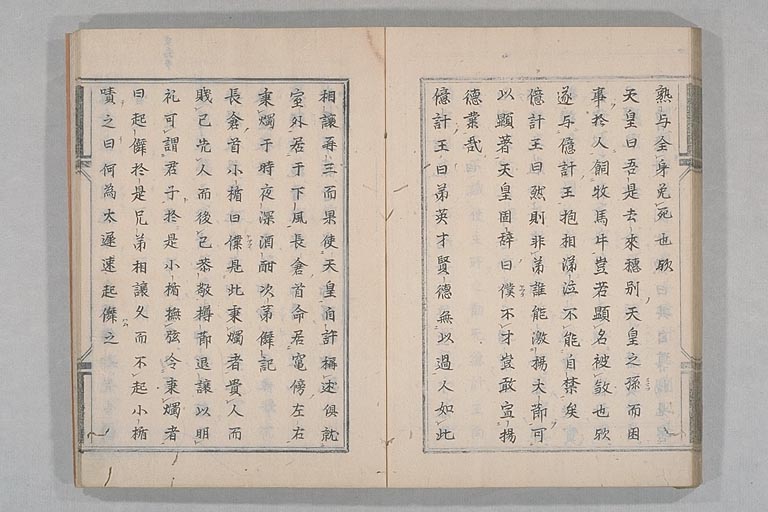 熟与全身免死也歟
天皇曰吾是去來穗別天皇之孫而困
事於人飼牧馬牛豈若顯名被敓也歟
遂与億計王抱相涕泣不能自禁矣
億計王曰然則非弟誰能激揚大節可
以顯著天皇固辞曰僕不才豈敢宣揚
德業哉
億計王曰弟英才賢德無以過人如此
相讓再三而果使天皇自許稱述俱就
室外居于下風長倉首命居竈傍左右
秉燭于時夜深酒酣次第儛訖
長倉首小楯曰僕見此秉燭者貴人而
賎己先人而後己恭敬樽節退讓以明
礼可謂君子於是小楯撫弦令秉燭者
曰起儛於是兄弟相讓久而不起小楯
嘖之曰何為太遲速起儛之